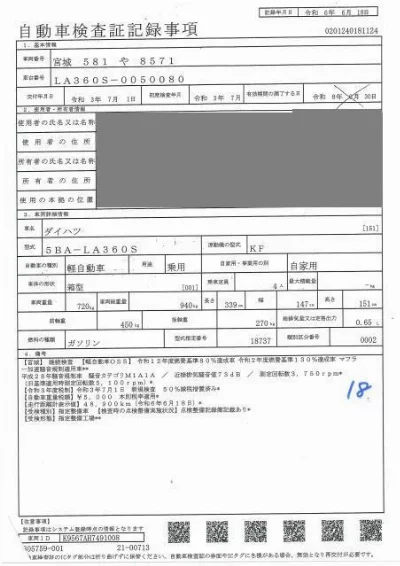 記録年月日 令和 6年 6月 18日
自動車検査証記録事項
0201240181124
1. 基本情報
車両番号 宮城 581 や 8571
車台番号 LA360S-0050080
交付年月日 令和 3年 7月 1日 初度検査年月 令和 3年 7月 有効期間の満了する日 令和 8年 6月 30日
2. 使用者・所有者情報
使用者の氏名又は名称
使用者の住所
所有者の氏名又は名称
所有者の住所
使用の本拠の位置
3. 車両詳細情報
車名 ダイハツ [151]
型式 5BA-LA360S 原動機の型式 KF
自動車の種別 軽自動車 用途 乗用 自家用・事業用の別 自家用
車体の形状 箱型 [001] 乗車定員 4人 最大積載量 -kg
車両重量 720kg 車両総重量 940kg 長さ 339cm 幅 147cm 高さ 151cm
前軸重 450kg 後軸重 270kg 総排気量又は定格出力 0.65L
燃料の種類 ガソリン 型式指定番号 18737 類別区分番号 0002
4. 備考
【宮城】 継続検査 【軽自動車OSS】 令和12年度燃費基準80%達成車 令和2年度燃費基準130%達成車 マフラ
ー加速騒音規制適用車**
平成28年騒音規制車 騒音カテゴリM1A1A / 近接排気騒音値73dB / 測定回転数3,750rpm*
(旧基準適用時測定回転数5,100rpm)*
【令和3年度税制】令和3年7月1日 新規検査 50%減税措置済み*
【自動車重量税額】¥5,000 本則税率適用*
【走行距離計表示値】48,900km(令和6年6月18日)*
【受検種別】指定整備車 【検査時の点検整備実施状況】点検整備記録簿記載あり*
【受検形態】指定整備工場**
18
【注意事項】
記録事項はシステム登録時点の情報となります
車両ID E9567AH7491008
R05759-001 21-00713